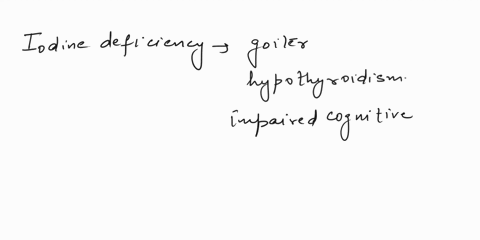 Iodine deficiency → goiter
hypothyroidism.
impaired cognitive